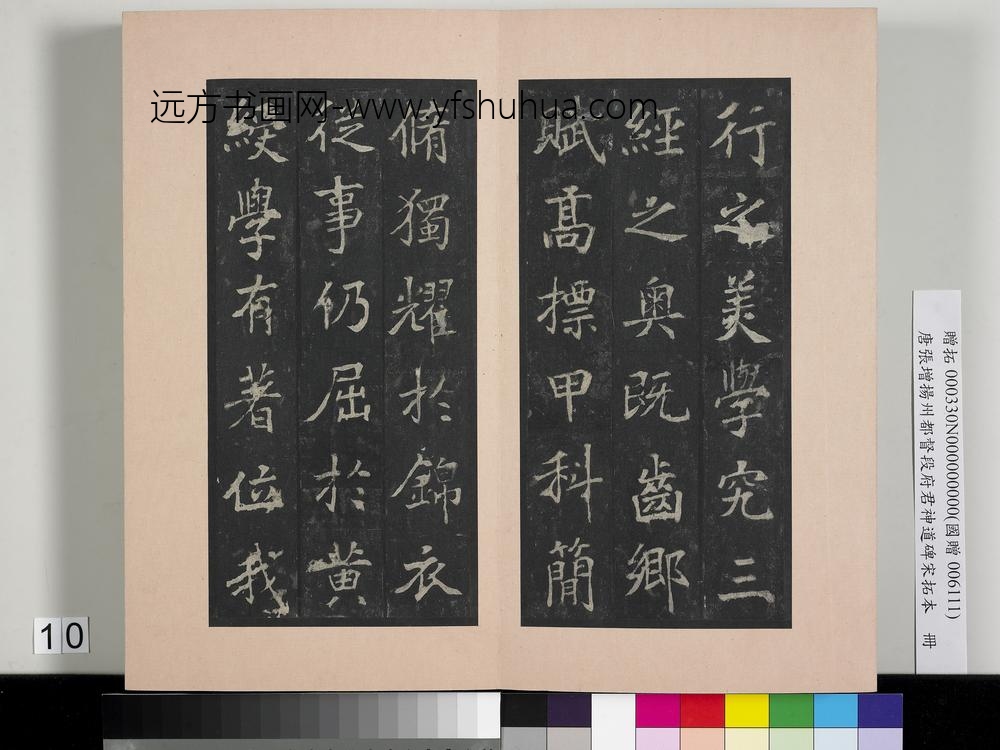 行之美學究三
經之奥既齒鄉
賦髙摽甲科簡
脩獨耀於錦衣
從事仍屈於黄
綬學有著位我
远方书画网-www.yfshuhua.com
贈拓 000330N000000000(國贈 006111)
唐張增揚州都督段府君神道碑宋拓本 冊
10